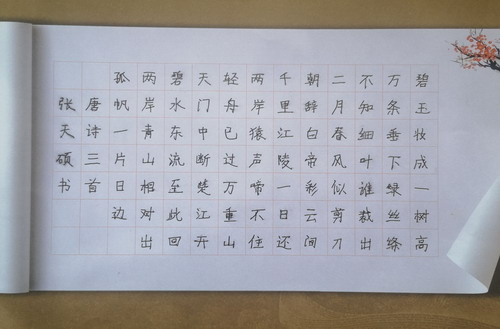 碧玉妆成一树高
万条垂下绿丝绦
不知细叶谁裁出
二月春风似剪刀
朝辞白帝彩云间
千里江陵一日还
两岸猿声啼不住
轻舟已过万重山
天门中断楚江开
碧水东流至此回
两岸青山相对出
孤帆一片日边
唐诗三首
张天硕书